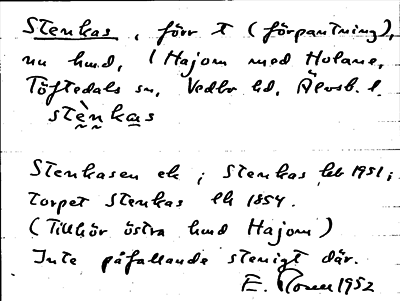 Stenkas, förr t (förpantning),
nu hmd, (Hajom med Holane,
Töftedals sn, Vedbo hd, Älvsb. l.
stènkas
Stenkasen ek; Stenkas 1951;
torpet Stenkas 1854.
(Tillhör östra hmd Hajom)
Inte påfallande stenigt där.
E. 1952